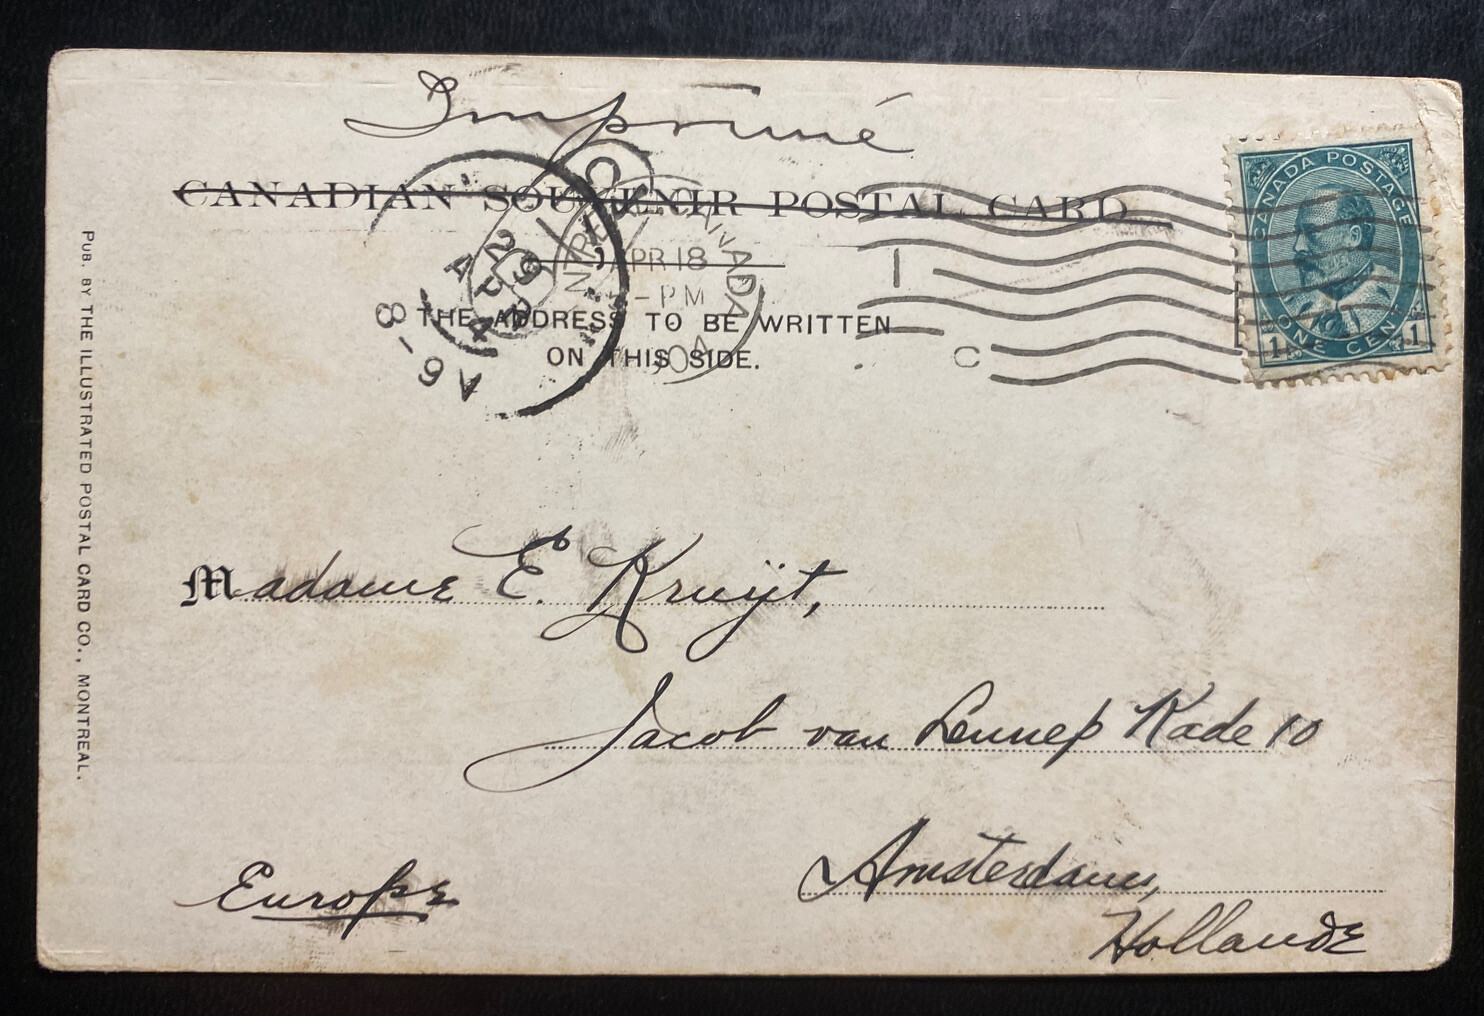 Imprimé
CANADIAN SOUVENIR POSTAL CARD
CANADA POSTAGE
ONE CENT
1 1
MONTREAL CANADA
APR 18
-PM
04
I
C
29
AP
4
8-9 V
THE ADDRESS TO BE WRITTEN
ON THIS SIDE.
PUB. BY THE ILLUSTRATED POSTAL CARD CO., MONTREAL.
Madame E. Kruijt,
Jacob van Lennep Kade 10
Amsterdam,
Hollande
Europe